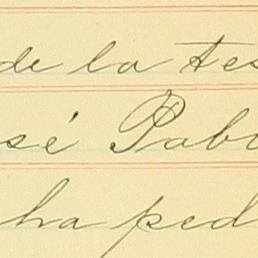 de la tes
sé Pabl
ha ped